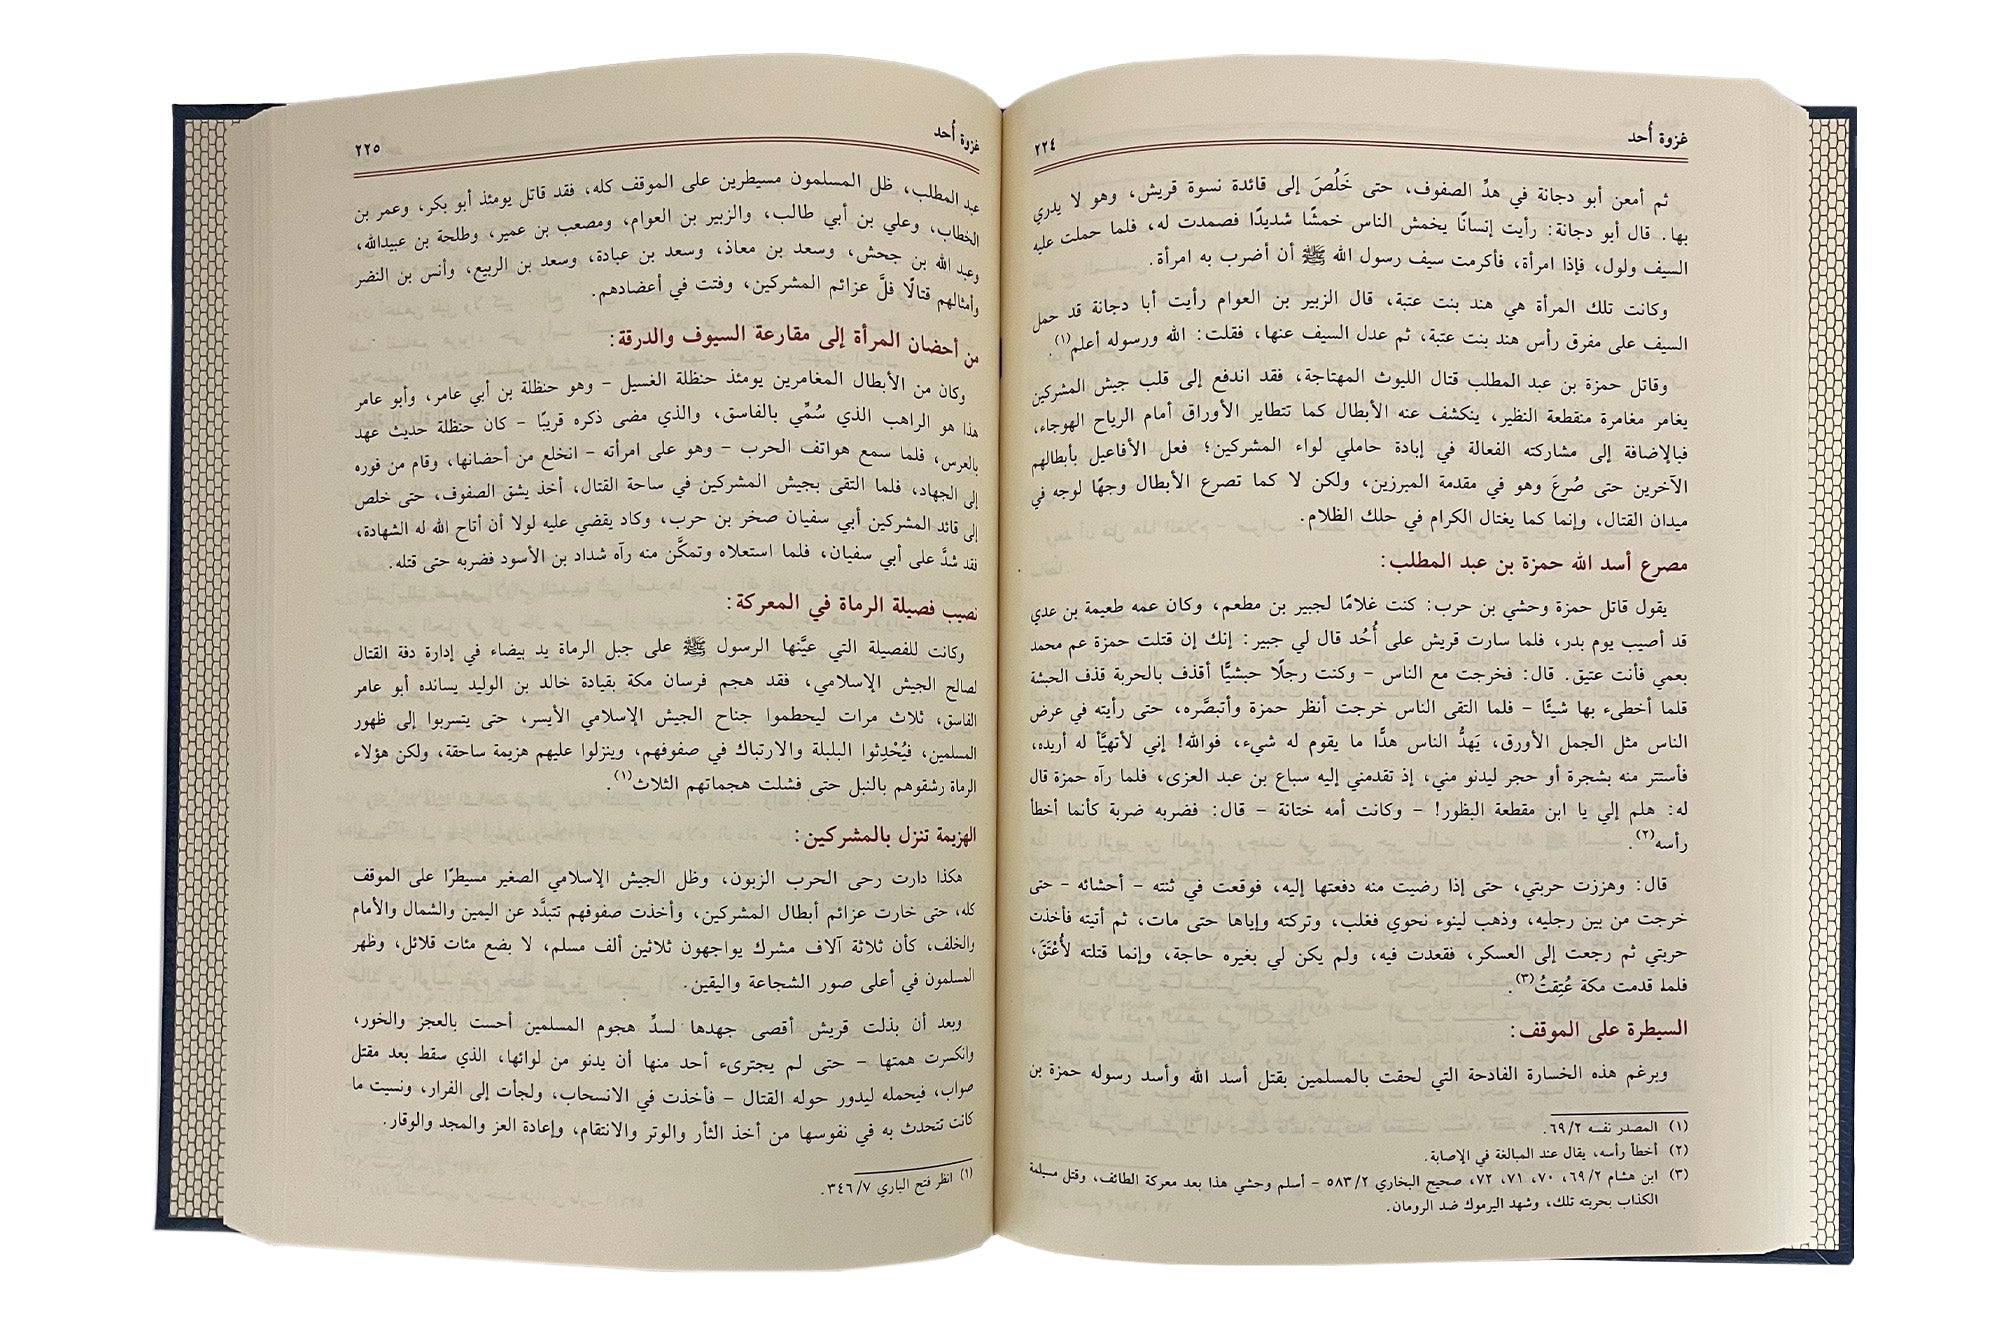 غزوة أُحد
٢٢٤
ثم أمعن أبو دجانة في هدِّ الصفوف، حتى خَلُصَ إلى قائدة نسوة قريش، وهو لا يدري
بها. قال أبو دجانة: رأيت إنسانًا يخمش الناس خمشًا شديدًا فصمدت له، فلما حملت عليه
السيف ولول، فإذا امرأة، فأكرمت سيف رسول الله ﷺ أن أضرب به امرأة.
وكانت تلك المرأة هي هند بنت عتبة، قال الزبير بن العوام رأيت أبا دجانة قد حمل
السيف على مفرق رأس هند بنت عتبة، ثم عدل السيف عنها، فقلت: الله ورسوله أعلم(١).
وقاتل حمزة بن عبد المطلب قتال الليوث المهتاجة، فقد اندفع إلى قلب جيش المشركين
يغامر مغامرة منقطعة النظير، ينكشف عنه الأبطال كما تتطاير الأوراق أمام الرياح الهوجاء،
فبالإضافة إلى مشاركته الفعالة في إبادة حاملي لواء المشركين؛ فعل الأفاعيل بأبطالهم
الآخرين حتى صُرعَ وهو في مقدمة المبرزين، ولكن لا كما تصرع الأبطال وجهًا لوجه في
ميدان القتال، وإنما كما يغتال الكرام في حلك الظلام.
مصرع أسد الله حمزة بن عبد المطلب:
يقول قاتل حمزة وحشي بن حرب: كنت غلامًا لجبير بن مطعم، وكان عمه طعيمة بن عدي
قد أصيب يوم بدر، فلما سارت قريش على أُحُد قال لي جبير: إنك إن قتلت حمزة عم محمد
بعمي فأنت عتيق. قال: فخرجت مع الناس – وكنت رجلًا حبشيًّا أقذف بالحربة قذف الحبشة
قلما أخطىء بها شيئًا – فلما التقى الناس خرجت أنظر حمزة وأتبصَّره، حتى رأيته في عرض
الناس مثل الجمل الأورق، يَهدُّ الناس هدًّا ما يقوم له شيء، فوالله! إني لأتهيَّأ له أريده،
فأستتر منه بشجرة أو حجر ليدنو مني، إذ تقدمني إليه سباع بن عبد العزى، فلما رآه حمزة قال
له: هلم إلي يا ابن مقطعة البظور! – وكانت أمه ختانة – قال: فضربه ضربة كأنما أخطأ
رأسه(٢).
قال: وهززت حربتي، حتى إذا رضيت منه دفعتها إليه، فوقعت في ثنته – أحشائه – حتى
خرجت من بين رجليه، وذهب لينوء نحوي فغلب، وتركته وإياها حتى مات، ثم أتيته فأخذت
حربتي ثم رجعت إلى العسكر، فقعدت فيه، ولم يكن لي بغيره حاجة، وإنما قتلته لأُعْتَقَ،
فلما قدمت مكة عُتِقتُ(٣).
السيطرة على الموقف:
وبرغم هذه الخسارة الفادحة التي لحقت بالمسلمين بقتل أسد الله وأسد رسوله حمزة بن
(١) المصدر نفسه ٦٩/٢.
(٢) أخطأ رأسه، يقال عند المبالغة في الإصابة.
(٣) ابن هشام ٦٩/٢، ٧٠، ٧١، ٧٢، صحيح البخاري ٥٨٣/٢ – أسلم وحشي هذا بعد معركة الطائف، وقتل مسيلمة
الكذاب بحربته تلك، وشهد اليرموك ضد الرومان.
غزوة أُحد
٢٢٥
عبد المطلب، ظل المسلمون مسيطرين على الموقف كله، فقد قاتل يومئذ أبو بكر، وعمر بن
الخطاب، وعلي بن أبي طالب، والزبير بن العوام، ومصعب بن عمير، وطلحة بن عبيدالله،
وعبد الله بن جحش، وسعد بن معاذ، وسعد بن عبادة، وسعد بن الربيع، وأنس بن النضر
وأمثالهم قتالًا فلَّ عزائم المشركين، وفتت في أعضادهم.
من أحضان المرأة إلى مقارعة السيوف والدرقة:
وكان من الأبطال المغامرين يومئذ حنظلة الغسيل – وهو حنظلة بن أبي عامر، وأبو عامر
هذا هو الراهب الذي سُمِّي بالفاسق، والذي مضى ذكره قريبًا – كان حنظلة حديث عهد
بالعرس، فلما سمع هواتف الحرب – وهو على امرأته – انخلع من أحضانها، وقام من فوره
إلى الجهاد، فلما التقى بجيش المشركين في ساحة القتال، أخذ يشق الصفوف، حتى خلص
إلى قائد المشركين أبي سفيان صخر بن حرب، وكاد يقضي عليه لولا أن أتاح الله له الشهادة،
فقد شدَّ على أبي سفيان، فلما استعلاه وتمكَّن منه رآه شداد بن الأسود فضربه حتى قتله.
نصيب فصيلة الرماة في المعركة:
وكانت للفصيلة التي عيَّنها الرسول ﷺ على جبل الرماة يد بيضاء في إدارة دفة القتال
لصالح الجيش الإسلامي، فقد هجم فرسان مكة بقيادة خالد بن الوليد يسانده أبو عامر
الفاسق، ثلاث مرات ليحطموا جناح الجيش الإسلامي الأيسر، حتى يتسربوا إلى ظهور
المسلمين، فيُحْدِثوا البلبلة والارتباك في صفوفهم، وينزلوا عليهم هزيمة ساحقة، ولكن هؤلاء
الرماة رشقوهم بالنبل حتى فشلت هجماتهم الثلاث(١).
الهزيمة تنزل بالمشركين:
هكذا دارت رحى الحرب الزبون، وظل الجيش الإسلامي الصغير مسيطرًا على الموقف
كله، حتى خارت عزائم أبطال المشركين، وأخذت صفوفهم تتبدَّد عن اليمين والشمال والأمام
والخلف، كأن ثلاثة آلاف مشرك يواجهون ثلاثين ألف مسلم، لا بضع مئات قلائل، وظهر
المسلمون في أعلى صور الشجاعة واليقين.
وبعد أن بذلت قريش أقصى جهدها لسدِّ هجوم المسلمين أحست بالعجز والخور،
وانكسرت همتها – حتى لم يجترىء أحد منها أن يدنو من لوائها، الذي سقط بعد مقتل
صواب، فيحمله ليدور حوله القتال – فأخذت في الانسحاب، ولجأت إلى الفرار، ونسيت ما
كانت تتحدث به في نفوسها من أخذ الثأر والوتر والانتقام، وإعادة العز والمجد والوقار.
(١) انظر فتح الباري ٣٤٦/٧.